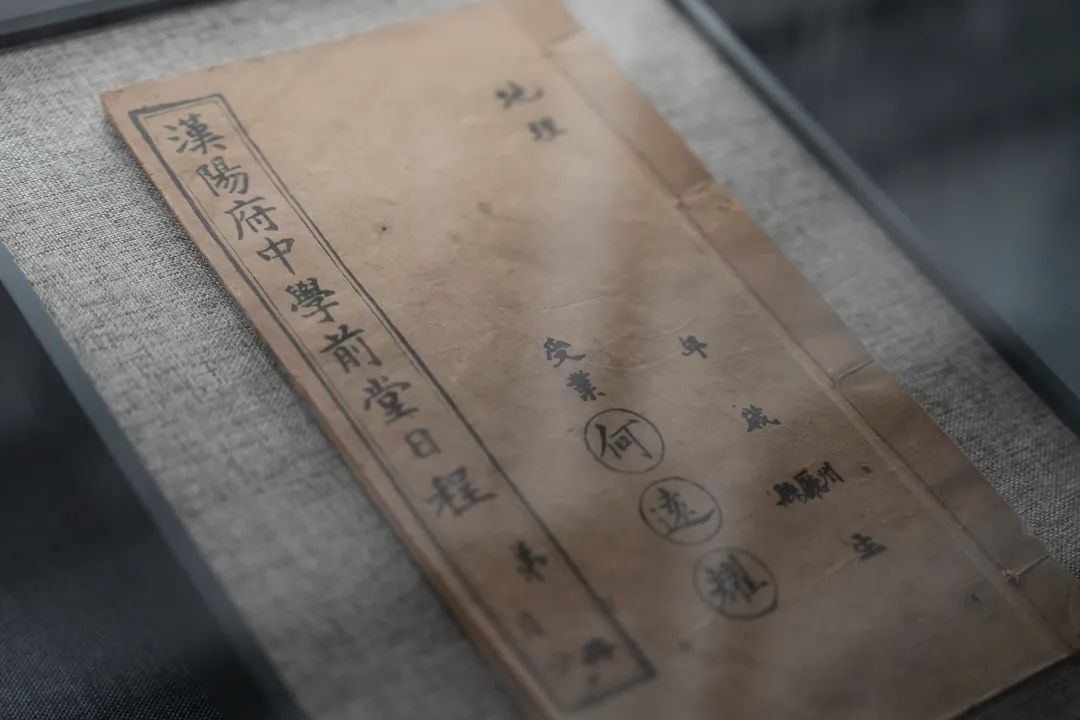 漢陽府中學前堂日程 第 冊
地理
受業 何遠耀
年 歲 縣廳州 生